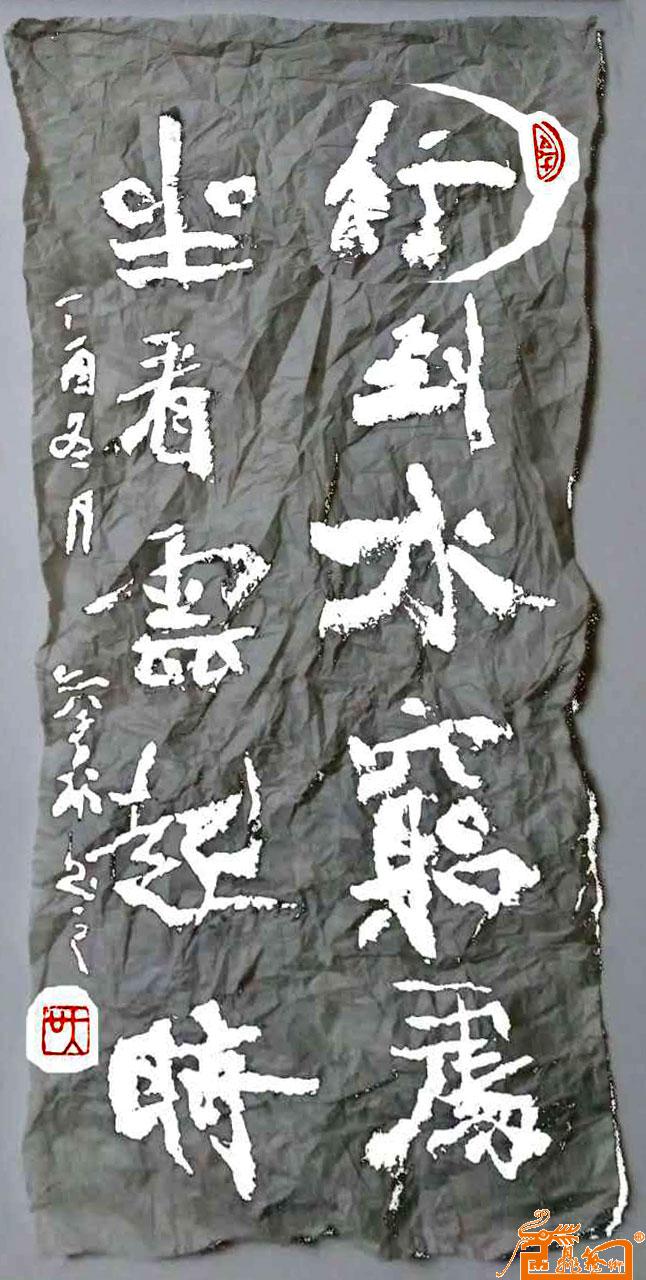 行到水窮處
坐看雲起時
丁酉冬月